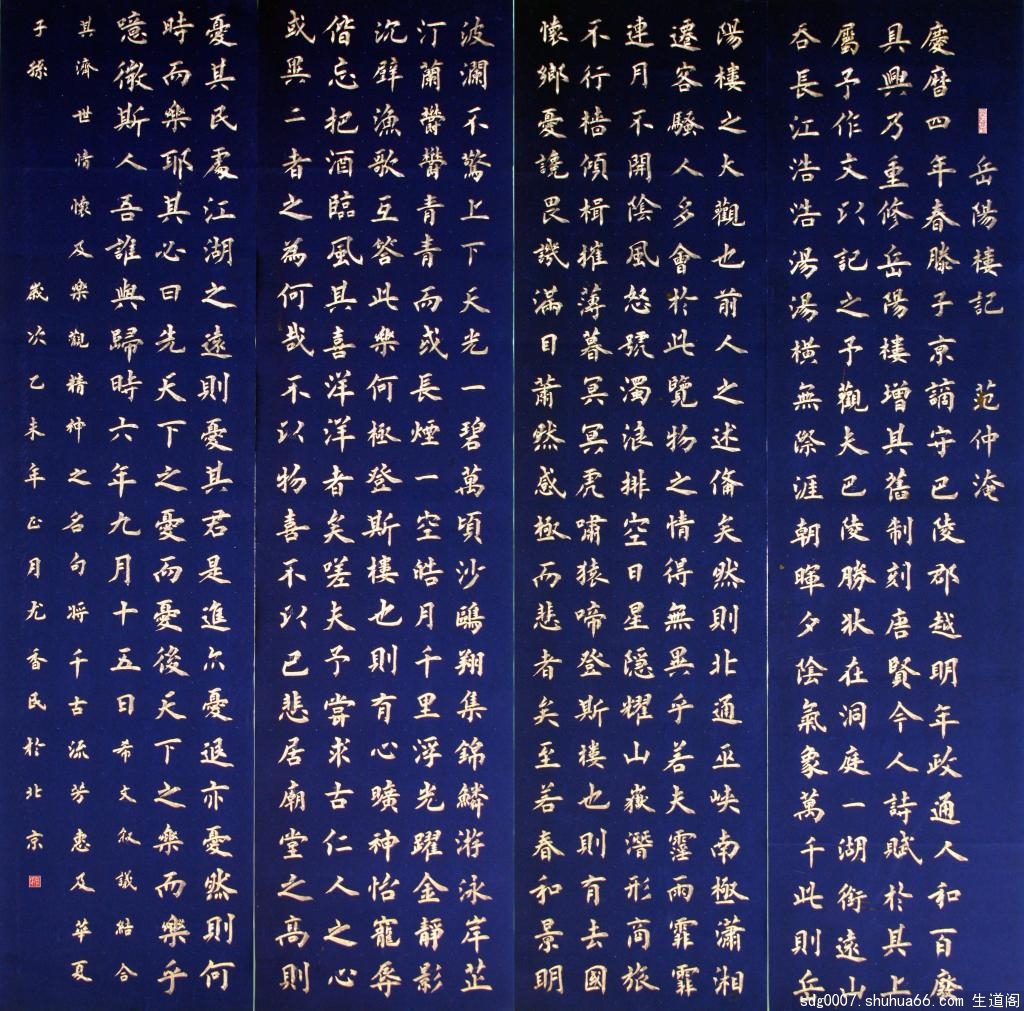 岳陽楼記 范仲淹
慶曆四年春滕子京謫守巴陵郡越明年政通人和百廢
具興乃重修岳陽楼增其舊制刻唐賢今人詩賦於其上
屬予作文以記之予觀夫巴陵勝狀在洞庭一湖銜遠山
吞長江浩浩湯湯橫無際涯朝暉夕陰氣象萬千此則岳
陽楼之大觀也前人之述備矣然則北通巫峽南極瀟湘
遷客騷人多會於此覽物之情得無異乎若夫霪雨霏霏
連月不開陰風怒號濁浪排空日星隱耀山嶽潛形商旅
不行檣傾楫摧薄暮冥冥虎嘯猿啼登斯楼也則有去國
懷鄉憂讒畏譏滿目蕭然感極而悲者矣至若春和景明
波瀾不驚上下天光一碧萬頃沙鷗翔集錦鱗游泳岸芷
汀蘭鬱鬱青青而或長煙一空皓月千里浮光躍金靜影
沉璧漁歌互答此樂何極登斯楼也則有心曠神怡寵辱
偕忘把酒臨風其喜洋洋者矣嗟夫予嘗求古仁人之心
或異二者之為何哉不以物喜不以己悲居廟堂之高則
憂其民處江湖之遠則憂其君是進亦憂退亦憂然則何
時而樂耶其必曰先天下之憂而憂後天下之樂而樂乎
噫微斯人吾誰與歸時六年九月十五日 希文叙議結合
其濟世情懷及樂觀精神之名句將千古流芳惠及華夏
子孫 歲次乙未年正月尤香民於北京
sdg0007.shuhua66.com 生道阁